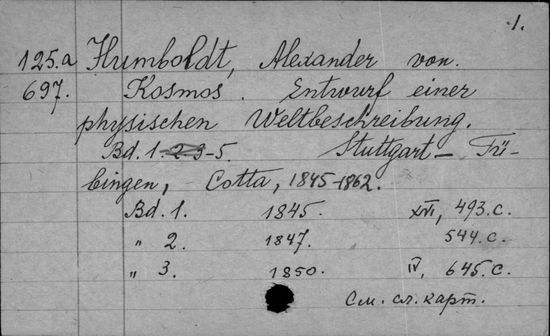 1.
125.a Humboldt, Alexander von.
697. Kosmos. Entwurf einer
physischen Weltbeschreibung.
Bd. 1.-5. Stuttgart – Tü-
bingen, Cotta, 1845-1862.
Bd. 1. 1845. XVI, 493.c.
" 2. 1847. 544.c.
" 3. 1850. IV, 645.c.
См. сл. карт.